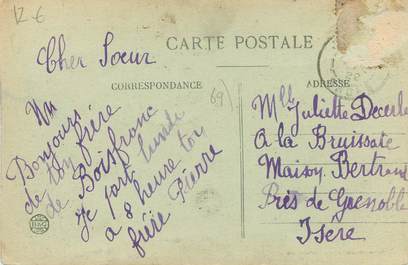 126
Cher Soeur
CARTE POSTALE
CORRESPONDANCE
ADRESSE
69
Un
Bonjours
de ton frére
de Boisfranc
Je part lundi
a 8 heure ton
frére Pierre
Mlle Juliette Decerle
A la Bruissate
Maison Bertrand
Près de Grenoble
Isère